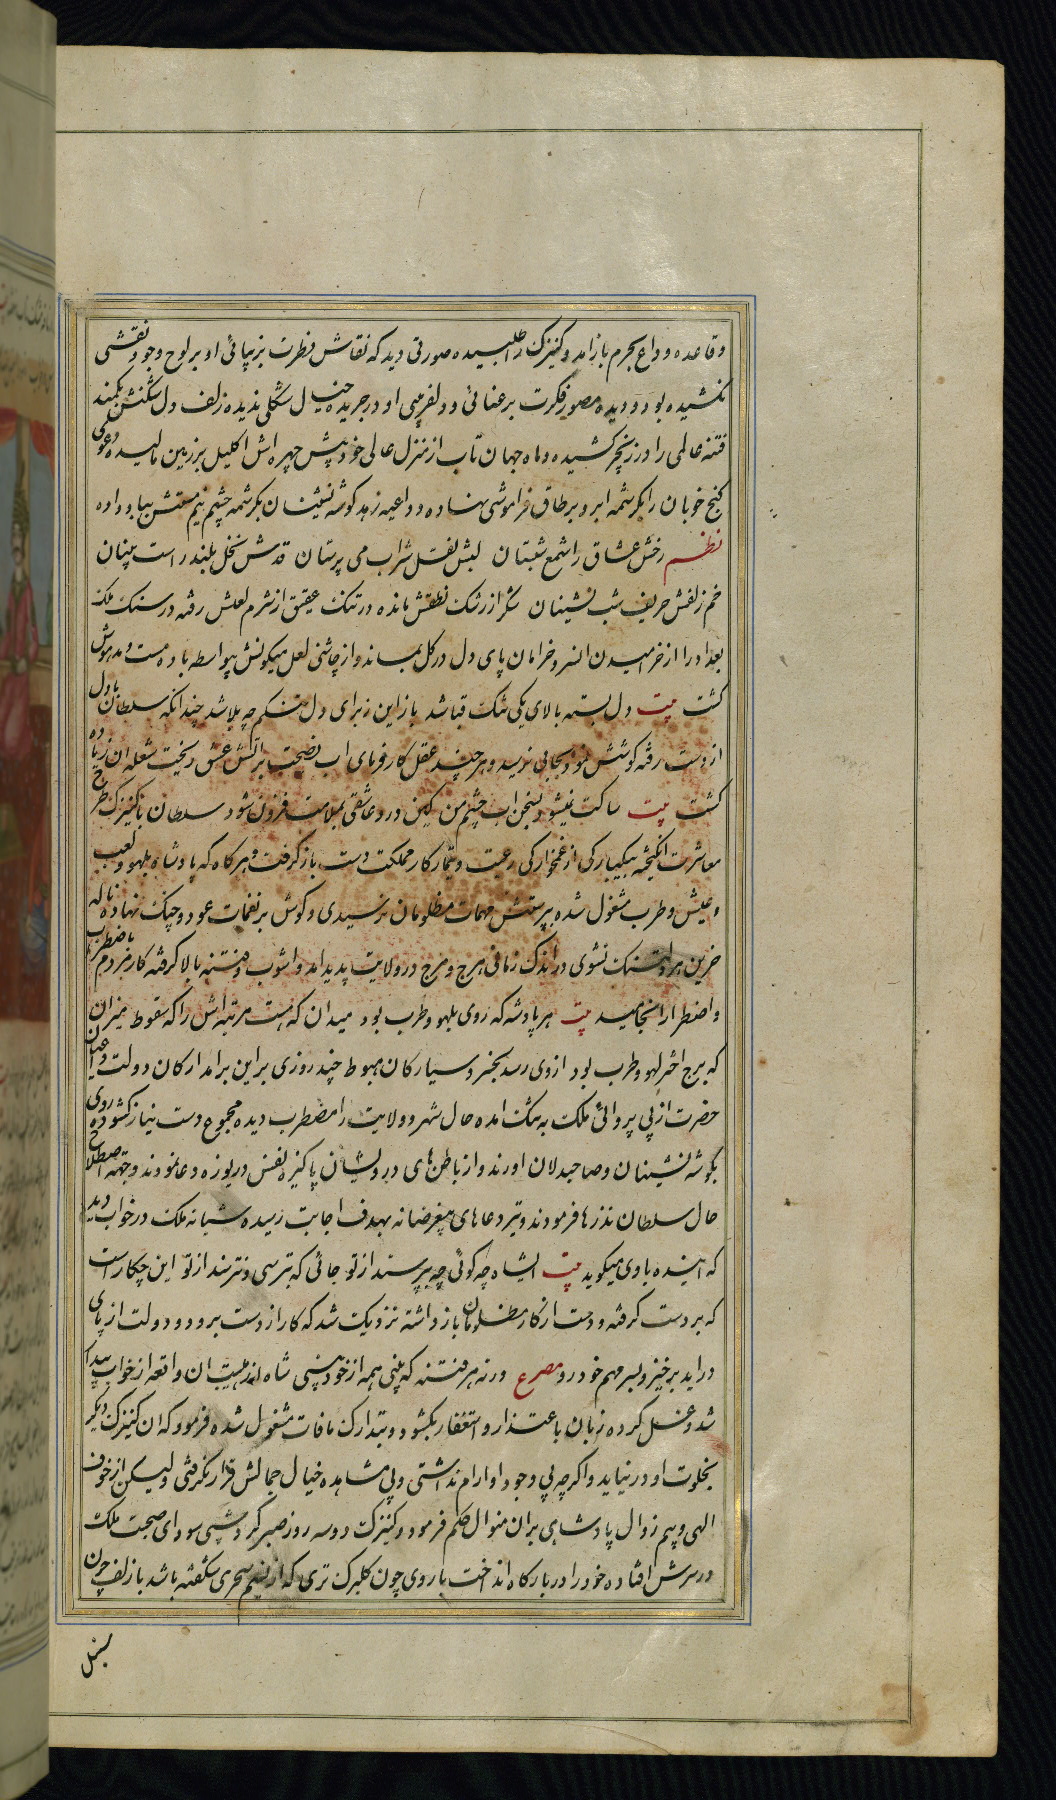 و قاعده وداع بحرم باز امد و کنیزک را طلبیده صورتی دید که نقاش فطرت بزیبائی او بر لوح وجود نقشی
نکشیده بود و دیده مصور فکرت برعنائی و دلفریبی او در جریده خیال شکلی ندیده زلف دل شکنش بکمند
فتنه عالمی را در زنجیر کشیده و ماه جهان تاب از منزل عالی خود پیش چهره اش اکلیل بر زمین مالیده دعوی
کنج خوبان را بکرشمه ابرو بر طاق فراموشی نهاده و داعیه زهد کوشه نشینان بکرشمه چشم نیم مستش بباد داده
نظم رخش عشاق را شمع شبستان لبش نقل شراب می پرستان قدش نخل بلند راست بینان
خم زلفش حریف شب نشینان شکر از رشک نطقش مانده در تنک عقیق از شرم لعلش رفته در سنک ملک
بعد او را از خرامیدن ان سرو خرامان پای دل در کل بماند و از چاشنی لعل میکونش بیواسطه باده مست و مدهوش
کشت بیت دل بسته بالای یکی تنک قبا شد باز این ز برای دل تنکم چه بلا شد چندانکه سلطان با دل
از دست رفته کوشش نمود بجایی نرسید و هر چند عقل کارفرمای اب نصیحت بر اتش عشق ریخت شعله ان زیاده
کشت بیت ساکت نمیشود بسخن اب چشم من کین درد عاشقی بملامت فزون شود سلطان با کنیزک طرح
معاشرت انکیخته بیکبارکی از غمخوارکی رعیت و تیمار کار مملکت دست باز کرفت و هرکاه که پادشاه بلهو و لعب
و عیش و طرب مشغول شده بپرستش مهمات مظلومان نرسیدی و کوش بر نغمات عود و چنک نهاده ناله
حزین هر دلتنک نشنوی در اندک زمانی هرج و مرج در ولایت پدید امد و اشوب و فتنه بالا کرفته کار مردم باضطرب
و اضطرار انجامید بیت هر پادشه که روی بلهو و طرب بود میدان که هست مرتبه اش را که سقوط میزان
که برج اختر لهو و طرب بود از وی رسد بخیر و سیارکان هبوط چند روزی بر این برامد ارکان دولت و اعیان
حضرت از بی پروائی ملک به تنک امده حال شهر و ولایت را مضطرب دیده مجموع دست نیاز کشوده روی
بکوشه نشینان و صاحبدلان اورند و از باطن های درویشان پاکیزه نفس دریوزه دعا نمودند و جهة اصطلاح
حال سلطان نذرها فرمودند و تیر دعاهای بیغرضانه بهدف اجابت رسیده شبانه ملک در خواب دید
که اینده باوی میکوید بیت ایشاه چه کوئی چه بپرسند از تو جائی که بترسی و نترسند از تو این چکار است
که بر دست کرفته و دست از کار مظلومان باز داشته نزدیک شد که کار از دست برود و دولت از پای
دراید برخیز و بسر مهم خود رو مصرع ورنه هر فتنه که بینی همه از خود بینی شاه از هیبت ان واقعه از خواب بیدار
شد و غسل کرده زبان باعتذار و استغفار بکشود و بتدارک مافات مشغول شده فرمود که ان کنیزک دیکر
بخلوت او در نیاید و اکرچه بی وجود او ارام نداشتی و بی مشاهده خیال جمالش قرار نکرفتی و لیکن از خوف
الهی و بیم زوال پادشاهی بران منوال حکم فرمود و کنیزک دو سه روز صبر کرد شبی سودای صحبت ملک
در سرش افتاده خود را در بارکاه انداخت با روی چون کلبرک تری که از نسیم سحری شکفته باشد با زلف چون
سنبل